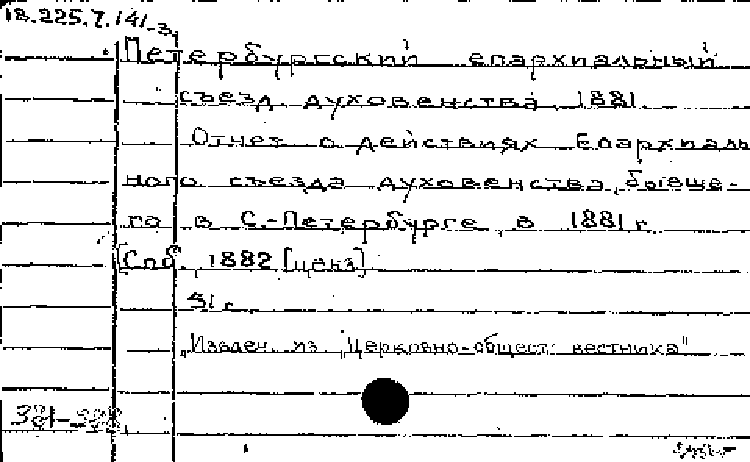 18.225.7.141-3
Петербургский епархиальный
съезд духовенства 1881.
Отчет о действиях Епархиаль
ного съезда духовенства, бывше-
го в С.-Петербурге в 1881 г.
Спб., 1882 [ценз]
31 с.
Извлеч. из "Церковно-общест. вестника"